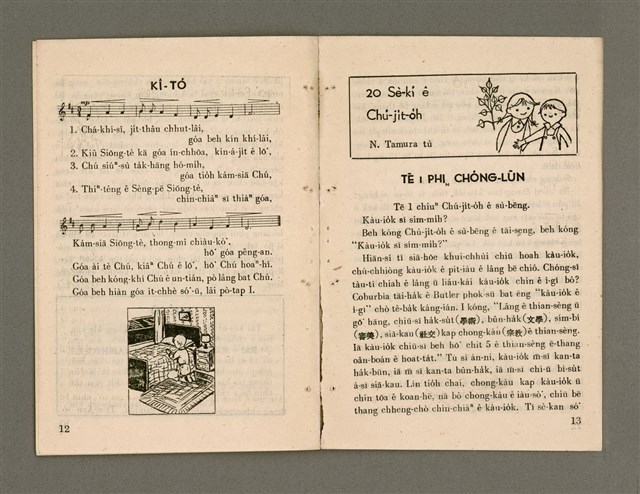 KÎ-TÓ
1. Chá-khí-sî, ji̍t-thâu chhut-lâi,
góa beh kín khí-lâi,
2. Kiû Siōng-tè kā góa ín-chhōa, kín-á-ji̍t ê lō͘,
3. Chú siúⁿ-sù ta̍k-hāng hó-mi̍h,
góa tio̍h kám-siā Chú,
4. Thiⁿ-téng ê Sèng-pē Siōng-tè,
chin-chiàⁿ sī thiàⁿ góa,
Kám-siā Siōng-tè, thong-mî chiàu-kò͘,
hō͘ góa pêng-an.
Góa ài tè Chú, kiâⁿ Chú ê lō͘, hō͘ Chú hoaⁿ-hí.
Góa beh kóng-khí Chú ê un-tián, pò lâng bat Chú.
Góa beh hiàn góa it-chhè só͘-ū, lâi pò-tap I.
12
20 Sè-kí ê
Chú-ji̍t-o̍h
N. Tamura tù
TĒ 1 PHIⁿ CHÓNG-LŪN
Tē 1 chiuⁿ Chú-ji̍t-o̍h ê sù-bēng.
Kàu-io̍k sī sím-mi̍h?
Beh kóng Chú-ji̍t-o̍h ê sù-bēng ê tāi-seng, beh kóng
“Kàu-io̍k sī sím-mi̍h?”
Hiān-sî tī siā-hōe khui-chhùi chiū hoah kàu-io̍k,
chú-chhiòng kàu-io̍k ê pit-iàu ê lâng bē chió. Chóng-sī
tàu-tí chiah ê lâng ū liáu-kái kàu-io̍k chin ê ì-gī bô?
Coburbia tāi-ha̍k ê Butler phok-sū bat ēng “kàu-io̍k ê
ì-gī” chò tê-ba̍k káng-ián. I kóng, “Lâng ê thian-sèng ū
gō͘ hāng, chiū-sī ha̍k-su̍t(學術), bûn-ha̍k(文學), sím-bí
(審美), siā-kau(社交) kap chong-kàu(宗教) ê thian-sèng.
Iā kàu-io̍k chiū-sī beh hō͘ chit 5 ê thian-sèng ē-thang
oân-boán ê hoat-ta̍t.” Tú sī án-ni, kàu-io̍k m̄-sī kan-ta
ha̍k-būn, iā m̄ sī kan-ta bûn-ha̍k, iā m̄-sī chí-ū bí-su̍t
á-sī siā-kau. Lín tio̍h chai, chong-kàu kap kàu-io̍k ū
chin tōa ê koan-hē, nā bô chong-kàu ê iàu-sò͘, chiū bē
thang chheng-chò chin-chiàⁿ ê kàu-io̍k. Tī sè-kan só͘
13